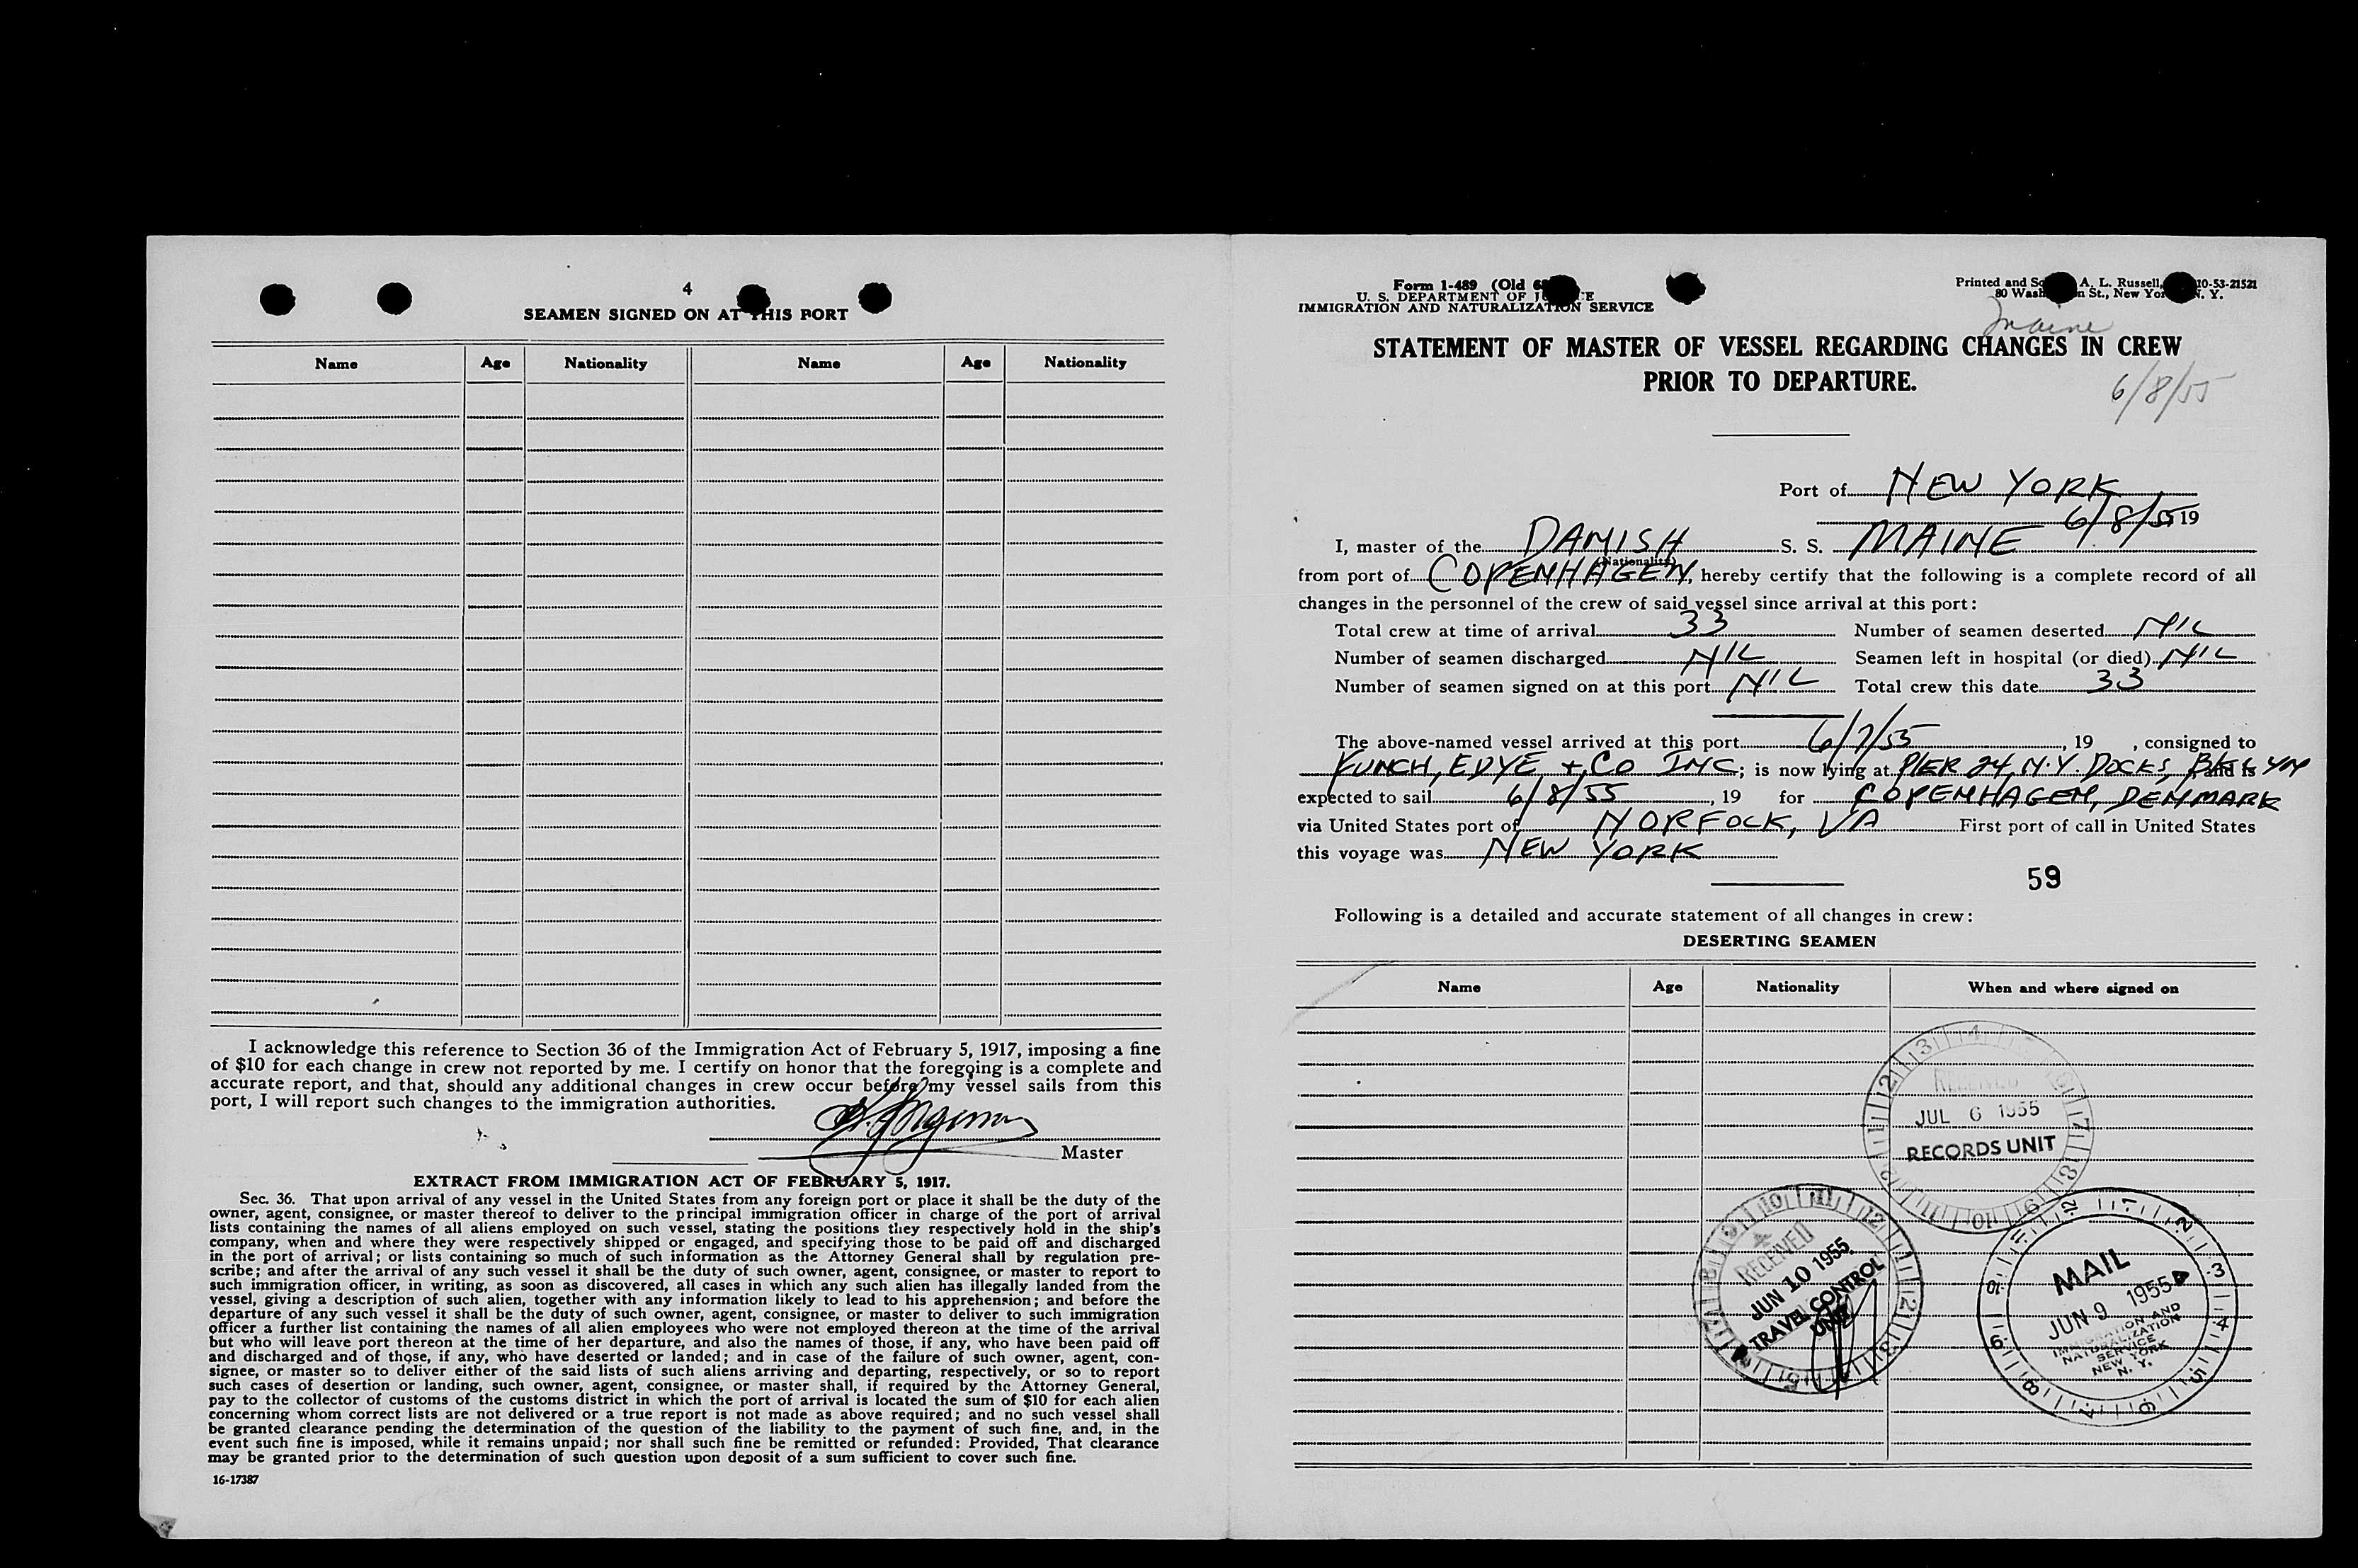 4
SEAMEN SIGNED ON AT THIS PORT
Name Age Nationality Name Age Nationality
I acknowledge this reference to Section 36 of the Immigration Act of February 5, 1917, imposing a fine
of $10 for each change in crew not reported by me. I certify on honor that the foregoing is a complete and
accurate report, and that, should any additional changes in crew occur before my vessel sails from this
port, I will report such changes to the immigration authorities.
Master
EXTRACT FROM IMMIGRATION ACT OF FEBRUARY 5, 1917.
Sec. 36. That upon arrival of any vessel in the United States from any foreign port or place it shall be the duty of the
owner, agent, consignee, or master thereof to deliver to the principal immigration officer in charge of the port of arrival
lists containing the names of all aliens employed on such vessel, stating the positions they respectively hold in the ship's
company, when and where they were respectively shipped or engaged, and specifying those to be paid off and discharged
in the port of arrival; or lists containing so much of such information as the Attorney General shall by regulation pre-
scribe; and after the arrival of any such vessel it shall be the duty of such owner, agent, consignee, or master to report to
such immigration officer, in writing, as soon as discovered, all cases in which any such alien has illegally landed from the
vessel, giving a description of such alien, together with any information likely to lead to his apprehension; and before the
departure of any such vessel it shall be the duty of such owner, agent, consignee, or master to deliver to such immigration
officer a further list containing the names of all alien employees who were not employed thereon at the time of the arrival
but who will leave port thereon at the time of her departure, and also the names of those, if any, who have been paid off
and discharged and of those, if any, who have deserted or landed; and in case of the failure of such owner, agent, con-
signee, or master so to deliver either of the said lists of such aliens arriving and departing, respectively, or so to report
such cases of desertion or landing, such owner, agent, consignee, or master shall, if required by the Attorney General,
pay to the collector of customs of the customs district in which the port of arrival is located the sum of $10 for each alien
concerning whom correct lists are not delivered or a true report is not made as above required; and no such vessel shall
be granted clearance pending the determination of the question of the liability to the payment of such fine, and, in the
event such fine is imposed, while it remains unpaid; nor shall such fine be remitted or refunded: Provided, That clearance
may be granted prior to the determination of such question upon deposit of a sum sufficient to cover such fine.
16-17387
Form 1-489 (Old
U. S. DEPARTMENT OF
IMMIGRATION AND NATURALIZATION SERVICE
Printed and A. L. Russell, 10-53-21521
80 St., New York N. Y.
Maine
STATEMENT OF MASTER OF VESSEL REGARDING CHANGES IN CREW
PRIOR TO DEPARTURE.
6/8/55
Port of NEW YORK
6/8/55 19
I, master of the DANISH S. S. MAINE
(Nationality)
from port of COPENHAGEN, hereby certify that the following is a complete record of all
changes in the personnel of the crew of said vessel since arrival at this port:
Total crew at time of arrival 33 Number of seamen deserted NIL
Number of seamen discharged NIL Seamen left in hospital (or died) NIL
Number of seamen signed on at this port NIL Total crew this date 33
The above-named vessel arrived at this port 6/7/55, 19 , consigned to
FUNCH, EDYE + CO INC; is now lying at PIER 24, N.Y. DOCKS, BKLYN and is
expected to sail 6/8/55, 19 for COPENHAGEN, DENMARK
via United States port of NORFOLK, VA First port of call in United States
this voyage was NEW YORK
59
Following is a detailed and accurate statement of all changes in crew:
DESERTING SEAMEN
Name Age Nationality When and where signed on
RECEIVED
JUL 6 1955
RECORDS UNIT
RECEIVED
JUN 10 1955
TRAVEL CONTROL
UNIT
MAIL
JUN 9 1955
IMMIGRATION AND
NATURALIZATION
SERVICE
NEW YORK
N. Y.